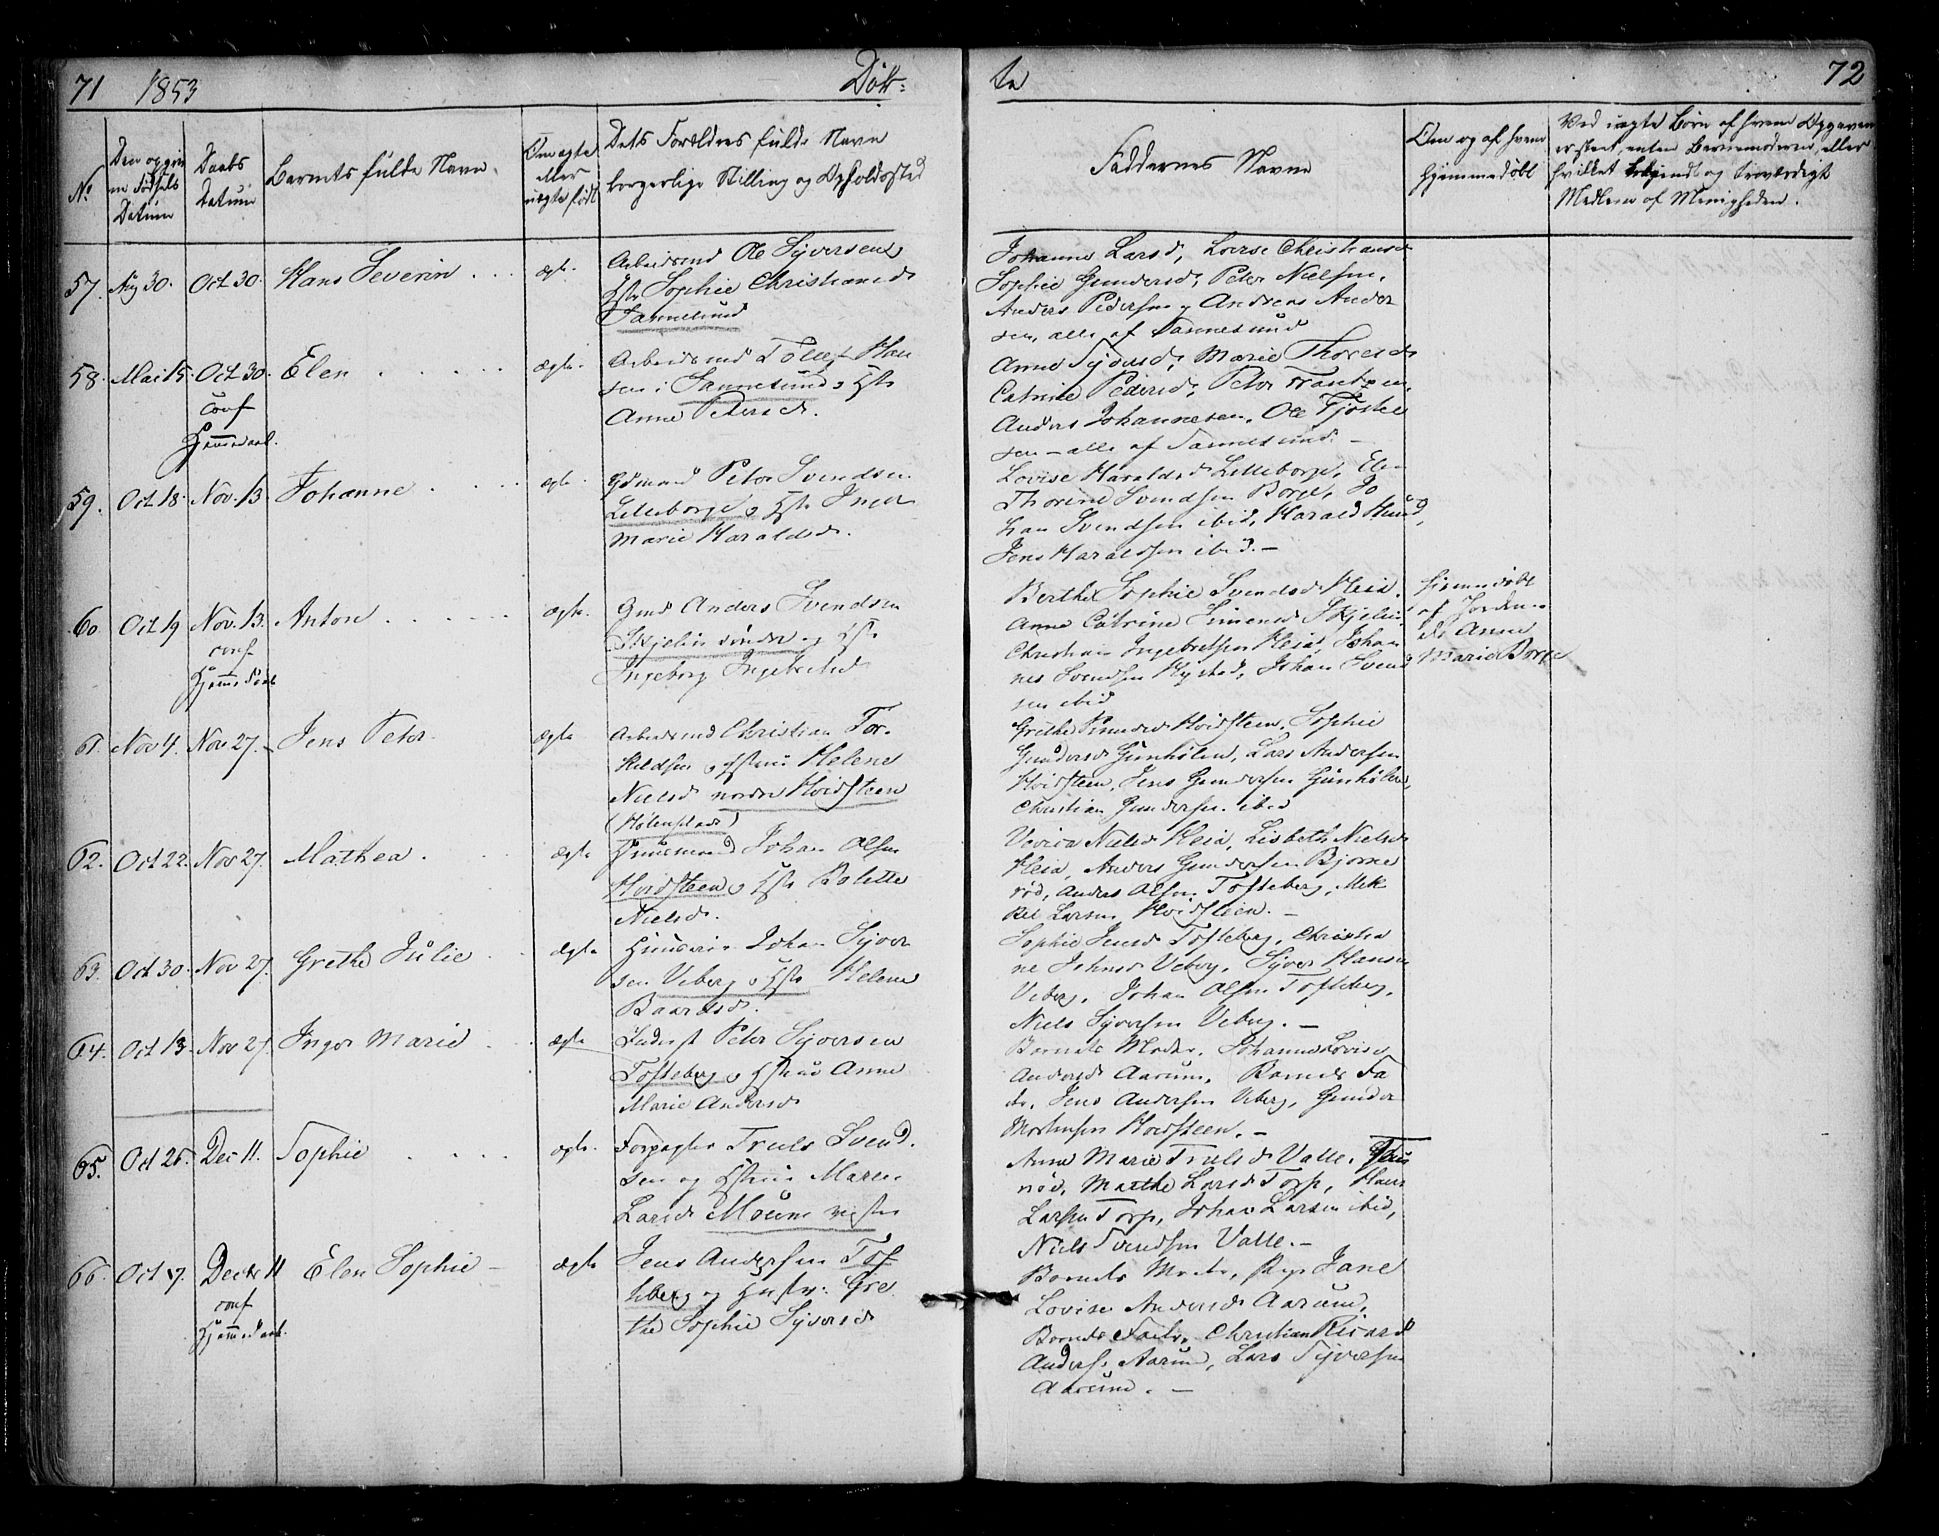 71 1853 Døb-
te 72
No
Den opgivne Fødsels Datum
Daabs Datum
Barnets fulde Navn
Om ægte eller uægte født
Dets Forældres fulde Navn
borgerlige Stilling og Opholdssted
Faddernes Navne
Om og af hvem
hjemmedøbt
Ved uægte Børn af hvem Opgaven
er skeet, enten Barnemoderen, eller
hvilket bekjendt og troværdigt
Medlem af Menigheden.
57. Aug 30. Oct 30. Hans Severin . . . ægte.
Arbeidsmd Ole Syversen
Hstr Sophie Christiansd
Sannesund
Johanne Larsd, Lovise Christiansd
Sophie Gundersd, Peter Nielsen,
Anders Pedersen, Andreas Ander
sen, alle af Sannesund
58. Mai 15. Oct 30. Elen . . . . . ægte.
conf
Hjemmedaab.
Arbeidsmd Tollef Han
sen i Sannesund, Hstr
Anne Petersd.
Anne Syversd, Marie Thoresd
Catrine Pedersd, Peter Frantzen,
Anders Johannesen, Ole
sen - alle af Sannesund. -
59. Oct 18. Nov. 13 Johanne . . . . ægte.
Gdmand Peter Svendsen
Lilleborge, Hstr Inger
Marie Haraldsd.
Lovise Haraldsd Lilleborge, Ele-
Thorine Svendsen Borge, Jo
han Svendsen ibid, Harald Hund,
Jens Haraldsen ibid. -
60. Oct 19 Nov. 13. Anton . . . . . . ægte.
conf
Hjemmedaab
Gmd Anders Svendsen
Skjelin søndre og Hstr
Ingeborg Ingebretsd
Berthe Sophie Svendsd Heia
Anne Catrine Simensd Skjelin,
Christian Ingebretsen Heia, Johan
nes Svendsen Hystad, Johan Svend
sen ibid
hjemmedøbt
af Jorden-
de Anne
Marie Borge
61. Nov 4. Nov 27. Jens Peter ægte
Arbeidsmd Christian Tor-
kildsen, Hstru Helene
Nielsd nordre Hvidsteen
(Hølenplads)
Grethe Knudsd Hvidsteen, Sophie
Gundersd Gunhølen, Lars Andersen
Hvidsteen, Jens Gundersen Gunhølen,
Christian Gundersen ibid
62. Oct 22. Nov 27. Mathea . . ægte
Huusmand Johan Olsen
Hvidsteen, Hstr Bolette
Nielsd.
Nielsd Heia, Lisbeth Nielsd
Heia, Anders Gundersen Bjørne
rød, Anders Olsen Tofteberg, Mik
kel Larsen Hvidsteen. -
63. Oct 30. Nov 27. Grethe Julie . . ægte
Johan Syver
sen Veberg, Hstr Helene
Baardsd.
Sophie Jensd Tofteberg, Christia
ne Johnsd Veberg, Syver Hansen
Veberg, Johan Olsen Tofteberg,
Niels Syversen Veberg. -
64. Oct 13. Nov 27. Inger Marie . . ægte
Inderst Peter Syversen
Tofteberg, Hstru Anne
Marie Andersd
Barnets Moder, Johanne Lovise
Andersd Aarum, Barnets Fa
der, Jens Andersen Veberg, Gunder
Mortensen Hvidsteen. -
65. Oct 25. Dec 11. Sophie . . . . ægte.
Forpagter Truls Svend-
sen og Hstru Maren
Larsd Moum vestre
Anne Marie Trulsd Valle,
rød, Marthe Larsd Torp, Hans
Larsen Torp, Johan Larsen ibid,
Niels Svendsen Valle. -
66. Oct 17. Decbr 11 Elen Sophie - ægte
conf
Hjemmedaab.
Jens Andersen Tof
teberg og Hustru Gre
the Sophie Syversd
Barnets Moder, Pige Jane
Lovise Andersd Aarum,
Barnets Fader, Christian Ricard
Anders. Aarum, Lars Syversen
Aarum. -